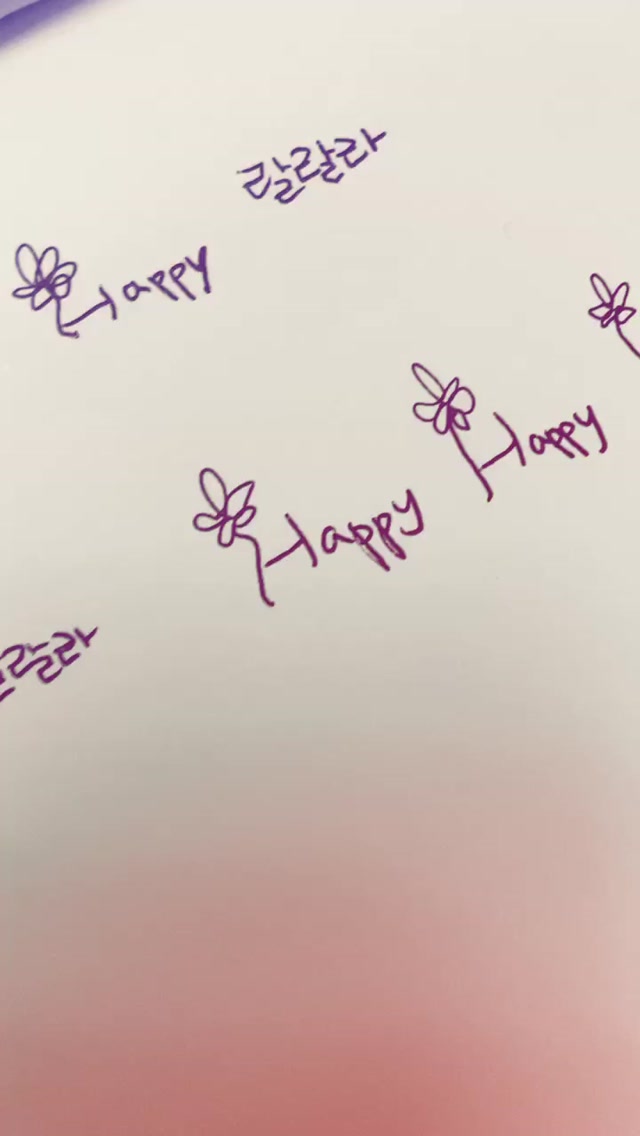 랄랄라
Happy
Happy
Happy
랄라